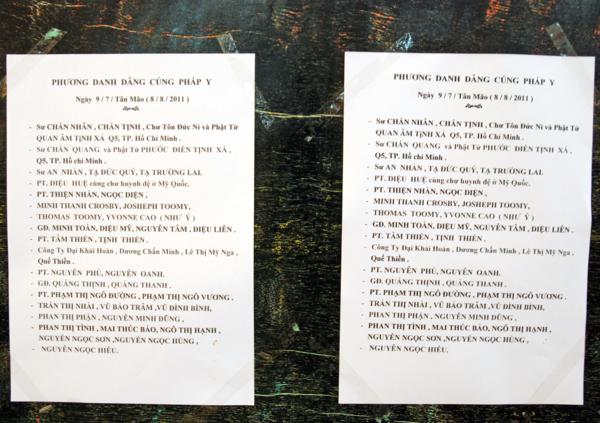 PHƯƠNG DANH DÂNG CÚNG PHÁP Y
Ngày 9 / 7 / Tân Mão ( 8 / 8 / 2011 )
- Sư CHÁN NHÂN , CHÁN TỊNH , Chư Tôn Đức Ni và Phật Tử
QUAN ÂM TỊNH XÁ Q5, TP. Hồ Chí Minh .
- Sư CHÁN QUANG và Phật Tử PHƯỚC ĐIỀN TỊNH XÁ ,
Q5, TP. Hồ chí Minh .
- Sư AN NHÀN , TẠ ĐỨC QUÝ, TẠ TRƯỜNG LAI.
- PT. DIỆU HUỆ cùng chư huynh đệ ở Mỹ Quốc.
- PT. THIỆN NHÂN, NGỌC DIỆN ,
- MINH THANH CROSBY, JOSHEPH TOOMY,
- THOMAS TOOMY, YVONNE CAO ( NHƯ Ý )
- GĐ. MINH TOÀN, DIỆU MỸ, NGUYÊN TÂM , DIỆU LIÊN .
- PT. TÂM THIỀN , TỊNH THIỀN .
- Công Ty Đại Khải Hoàn , Dương Chấn Minh , Lê Thị Mỹ Nga ,
Quế Thiền .
- PT. NGUYÊN PHÚ, NGUYÊN OANH.
- GĐ. QUẢNG THỊNH , QUẢNG THANH .
- PT. PHẠM THỊ NGÔ ĐƯỜNG , PHẠM THỊ NGÔ VƯƠNG .
- TRẦN THỊ NHÀI , VŨ BẢO TRÂM ,VŨ ĐÌNH BÌNH,
- PHAN THỊ PHẬN , NGUYỄN MINH DŨNG ,
- PHAN THỊ TÌNH , MAI THÚC BẢO, NGÔ THỊ HẠNH ,
NGUYỄN NGỌC SƠN ,NGUYỄN NGỌC HÙNG ,
- NGUYỄN NGỌC HIẾU.
PHƯƠNG DANH DÂNG CÚNG PHÁP Y
Ngày 9 / 7 / Tân Mão ( 8 / 8 / 2011 )
- Sư CHÁN NHÂN , CHÁN TỊNH , Chư Tôn Đức Ni và Phật Tử
QUAN ÂM TỊNH XÁ Q5, TP. Hồ Chí Minh .
- Sư CHÁN QUANG và Phật Tử PHƯỚC ĐIỀN TỊNH XÁ ,
Q5, TP. Hồ chí Minh .
- Sư AN NHÀN , TẠ ĐỨC QUÝ, TẠ TRƯỜNG LAI.
- PT. DIỆU HUỆ cùng chư huynh đệ ở Mỹ Quốc.
- PT. THIỆN NHÂN, NGỌC DIỆN ,
- MINH THANH CROSBY, JOSHEPH TOOMY,
- THOMAS TOOMY, YVONNE CAO ( NHƯ Ý )
- GĐ. MINH TOÀN, DIỆU MỸ, NGUYÊN TÂM , DIỆU LIÊN .
- PT. TÂM THIỀN , TỊNH THIỀN .
- Công Ty Đại Khải Hoàn , Dương Chấn Minh , Lê Thị Mỹ Nga ,
Quế Thiền .
- PT. NGUYÊN PHÚ, NGUYÊN OANH.
- GĐ. QUẢNG THỊNH , QUẢNG THANH .
- PT. PHẠM THỊ NGÔ ĐƯỜNG , PHẠM THỊ NGÔ VƯƠNG .
- TRẦN THỊ NHÀI , VŨ BẢO TRÂM ,VŨ ĐÌNH BÌNH,
- PHAN THỊ PHẬN , NGUYỄN MINH DŨNG ,
- PHAN THỊ TÌNH , MAI THÚC BẢO, NGÔ THỊ HẠNH ,
NGUYỄN NGỌC SƠN ,NGUYỄN NGỌC HÙNG ,
- NGUYỄN NGỌC HIẾU.